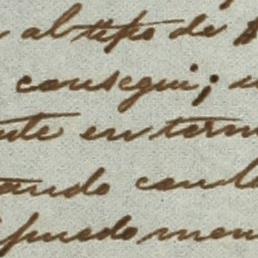 al tipo de
consegui; u
nte en term
ando con la
puedo men